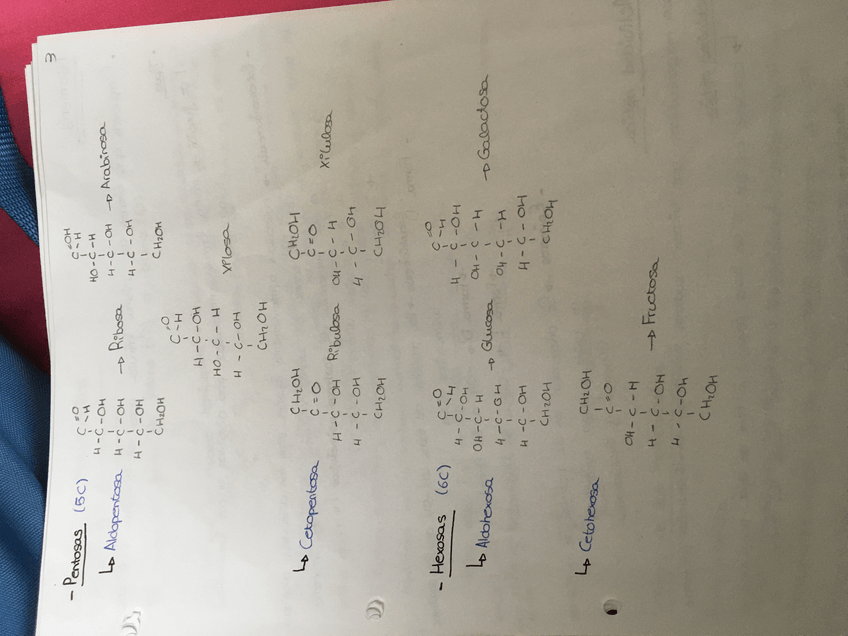 3
- Pentosas (5C)
↳ Aldopentosa
C=O
H
H-C-OH
H-C-OH
H-C-OH
CH2OH
→ Ribosa
C=OH
H
HO-C-H
H-C-OH
H-C-OH
CH2OH
→ Arabinosa
C=O
H
H-C-OH
HO-C-H
H-C-OH
CH2OH
Xilosa
↳ Cetopentosa
CH2OH
C=O
H-C-OH
H-C-OH
CH2OH
Ribulosa
CH2OH
C=O
OH-C-H
H-C-OH
CH2OH
Xilulosa
- Hexosas (6C)
↳ Aldohexosa
C=O
H
H-C-OH
OH-C-H
H-C-OH
H-C-OH
CH2OH
→ Glucosa
C=O
H
H-C-OH
OH-C-H
OH-C-H
H-C-OH
CH2OH
→ Galactosa
↳ Cetohexosa
CH2OH
C=O
OH-C-H
H-C-OH
H-C-OH
CH2OH
→ Fructosa